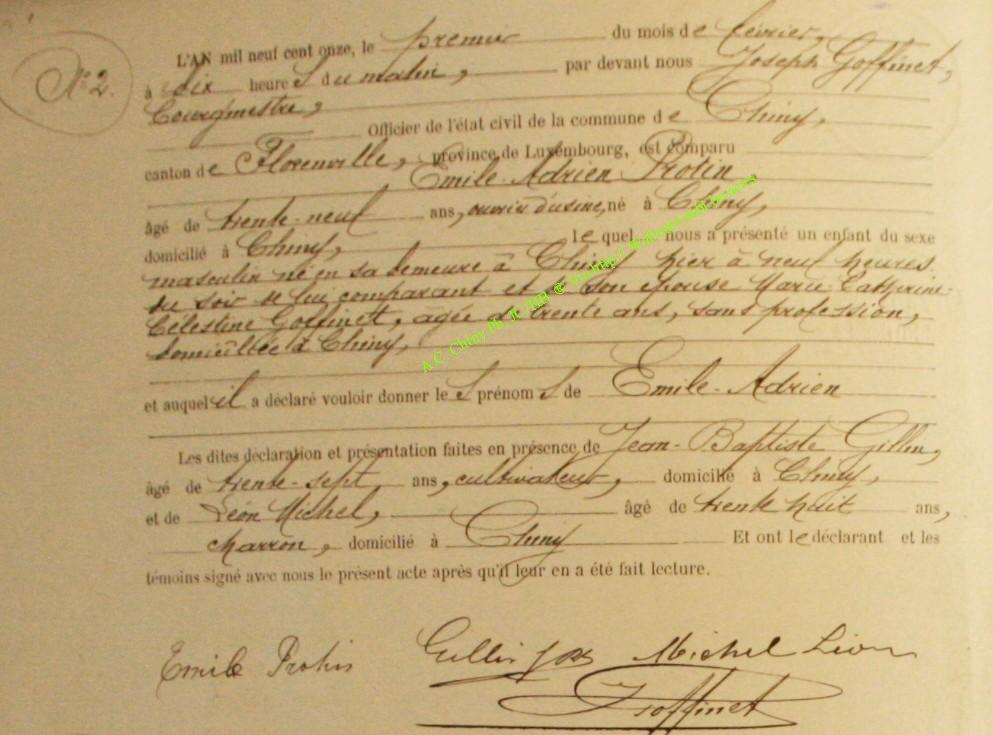 N° 2.
L'AN mil neuf cent onze, le premier du mois de février,
à dix heures du matin, par devant nous Joseph Goffinet,
bourgmestre,
Officier de l'état civil de la commune de Chiny,
canton de Florenville, province de Luxembourg, est comparu
Emile-Adrien Protin
âgé de trente-neuf ans, ouvrier d'usine, né à Chiny,
domicilié à Chiny, lequel nous a présenté un enfant du sexe
masculin né en sa demeure à Chiny hier à neuf heures
du soir de lui comparant et de son épouse Marie-Catherine-
Célestine Goffinet, agée de trente ans, sans profession,
domiciliée à Chiny,
et auquel il a déclaré vouloir donner les prénoms de Emile-Adrien
Les dites déclaration et présentation faites en présence de Jean-Baptiste Gillin,
âgé de trente-sept ans, cultivateur, domicilié à Chiny,
et de Léon Michel, âgé de trente huit ans,
charron, domicilié à Chiny Et ont le déclarant et les
témoins signé avec nous le présent acte après qu'il leur en a été fait lecture.
Emile Protin Gillin Michel Léon
J Goffinet
A.C. Chiny